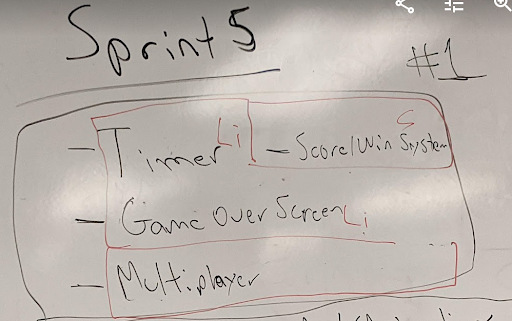 Sprint 5
#1
- Timer Li - Score/Win System S
- Game Over Screen Li
- Multiplayer